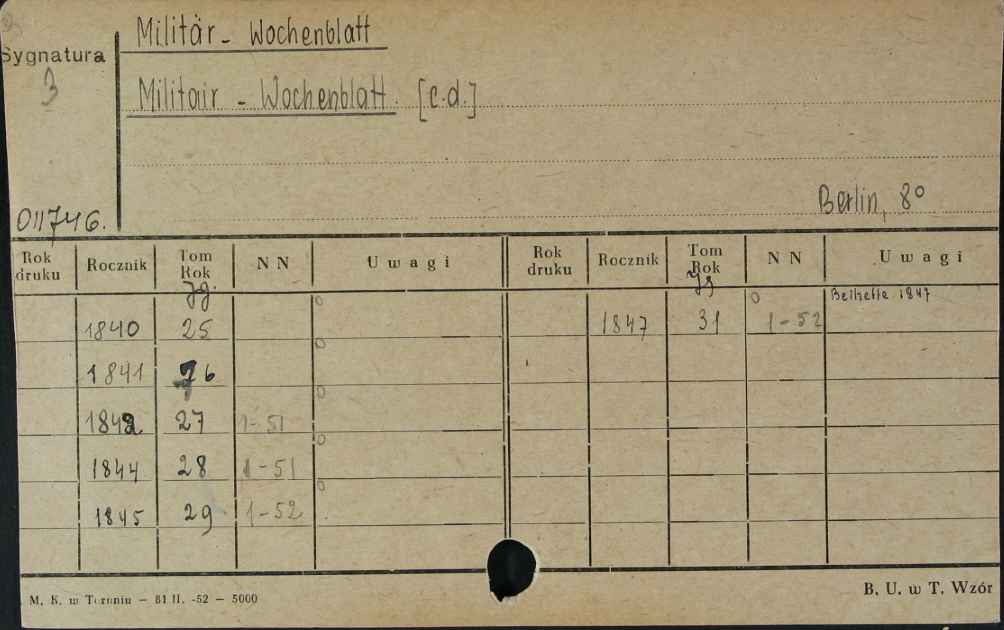 Militär - Wochenblatt
Sygnatura
3
Militair - Wochenblatt. [c.d.]
Berlin, 8°
011746.
Rok druku Rocznik Tom Rok NN Uwagi Rok druku Rocznik Tom Rok NN Uwagi
Jg. Jg
Beihefte 1847
1840 25 1847 31 1-52
1841 26
1842 27 1-51
1844 28 1-51
1845 29 1-52
M. K. w Toruniu — 81 II. -52 — 5000
B. U. w T. Wzór